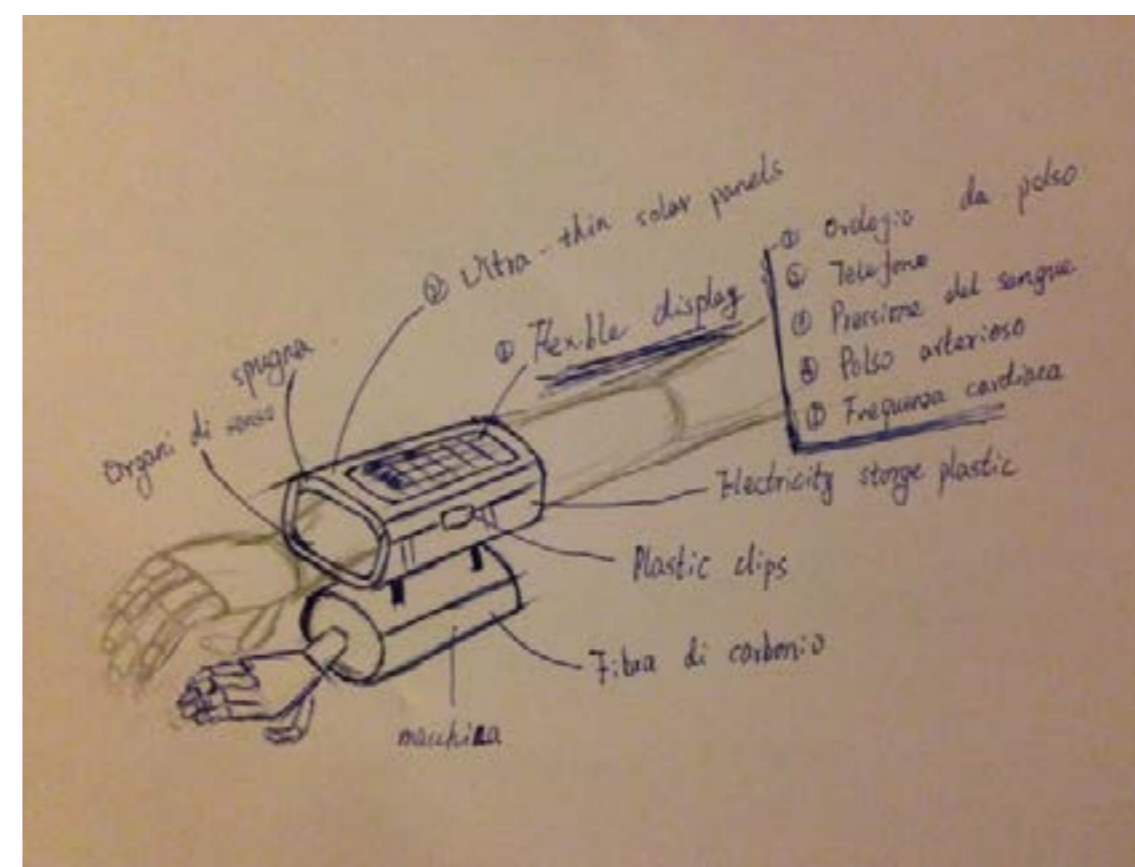 ② Ultra-thin solar panels
① Flexible display
① Orologio da polso
② Telefono
③ Pressione del sangue
④ Polso arterioso
⑤ Frequenza cardiaca
spugna
Organi di senso
Electricity storge plastic
Plastic clips
Fibra di carbonio
macchina